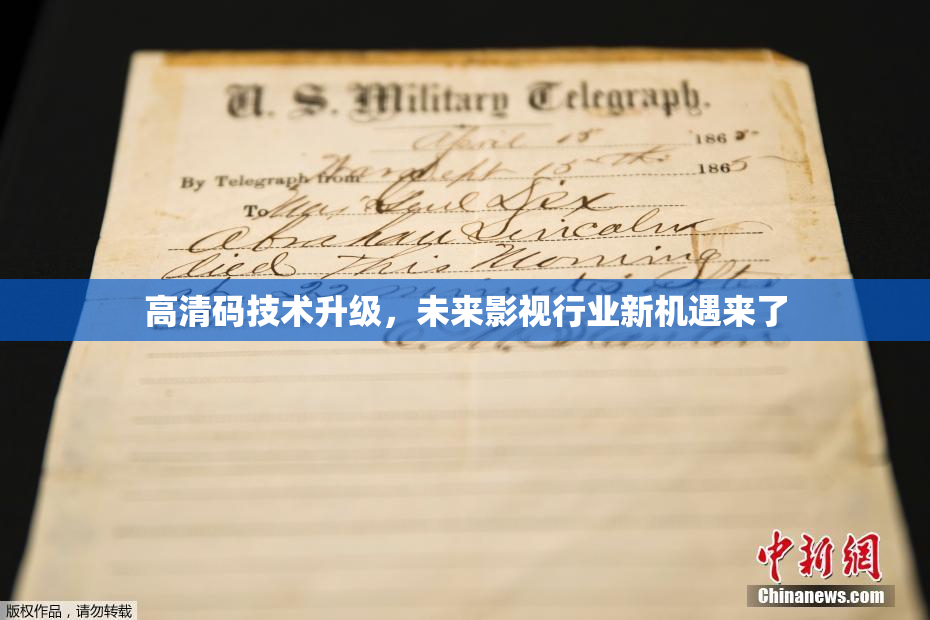 U. S. Military Telegraph.
April 15 1865
By Telegraph from War Dept 15th 1865
To Maj Genl Dix
Abraham Lincoln
died This Morning
at 22 minutes after
高清码技术升级，未来影视行业新机遇来了
E. M. Stanton
中新網
Chinanews.com
版权作品，请勿转载